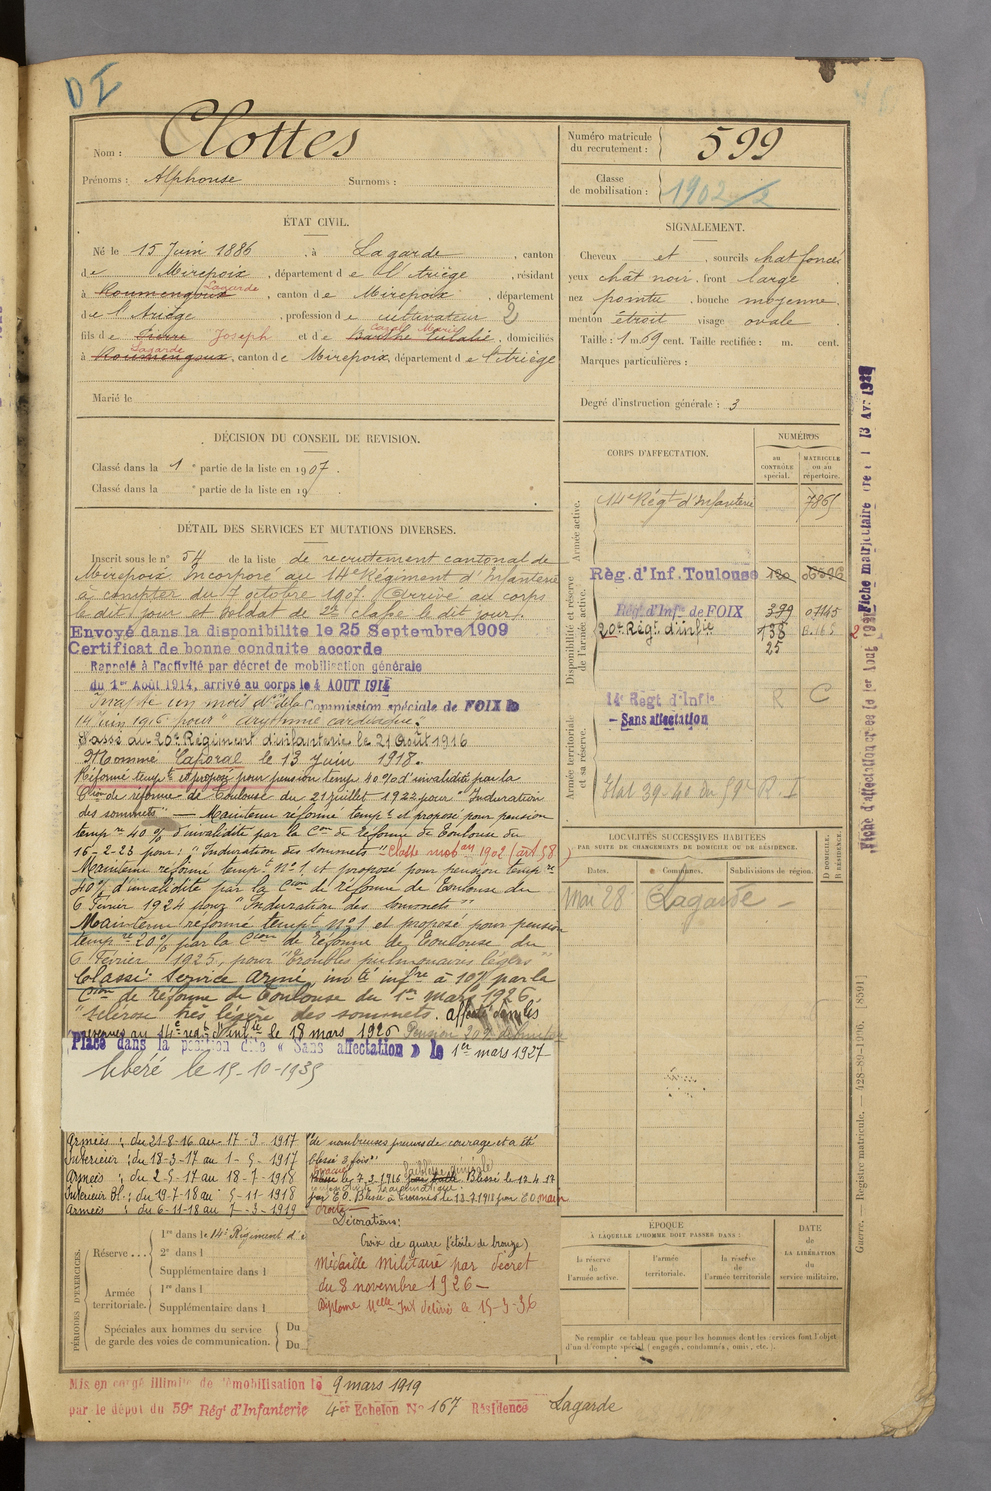 D I
Nom : Clottes
Prénoms : Alphonse Surnoms :
Numéro matricule du recrutement : 599
Classe de mobilisation : 1902/2
ÉTAT CIVIL.
Né le 15 Juin 1886, à Lagarde, canton
de Mirepoix, département de l'Ariège, résidant
Lagarde
à Roumengoux, canton de Mirepoix, département
de l'Ariège, profession de cultivateur 2
Marie
fils de Pierre Joseph et de Barthe Eulalie, domiciliés
Lagarde
à Roumengoux, canton de Mirepoix, département de l'Ariège
Marié le
SIGNALEMENT.
Cheveux et, sourcils chat foncé
yeux chat noir, front large
nez pointu, bouche moyenne
menton étroit visage ovale
Taille : 1 m. 69 cent. Taille rectifiée : m. cent.
Marques particulières :
Degré d'instruction générale : 3
DÉCISION DU CONSEIL DE REVISION.
Classé dans la 1e partie de la liste en 1907.
Classé dans la e partie de la liste en 19
DÉTAIL DES SERVICES ET MUTATIONS DIVERSES.
Inscrit sous le n° 54 de la liste de recrutement cantonal de
Mirepoix. Incorporé au 14e Régiment d'Infanterie
à compter du 7 octobre 1907. Arrivé au corps
le dit jour et soldat de 2e classe le dit jour.
Envoyé dans la disponibilite le 25 Septembre 1909
Certificat de bonne conduite accorde
Rappelé à l'activité par décret de mobilisation générale
du 1er Août 1914, arrivé au corps le 4 AOUT 1914
Inapte un mois Commission spéciale de FOIX le
14 Juin 1916 pour "arythmie cardiaque".
Passé au 20e Régiment d'infanterie le 21 Août 1916
Nommé Caporal le 13 Juin 1918.
Réformé tempre et proposé pour pension temp 40% d'invalidité par la
Cion de réforme de Toulouse du 21 juillet 1922 pour "Induration
des sommets" — Maintenu réformé tempre et proposé pour pension
tempre 40% d'invalidité par la Con de Réforme de Toulouse du
16-2-23 pour : "Induration des sommets" Classe mobon 1902 (art 58)
Maintenu réformé tempre n°1 et proposé pour pension tempre
40% d'invalidité par la Cion de réforme de Toulouse du
6 Février 1924 pour "Induration des sommets"
Maintenu réformé tempre n°1 et proposé pour pension
tempre 20% par la Cion de Réforme de Toulouse du
6 Février 1925, pour "troubles pulmonaires légers"
Classé : Service Armé, invté infre à 10% par la
Cion de réforme de Toulouse du 1er mars 1926
"Sclérose très légère des sommets". affecté dans les
réserves au 14e regt d'infie le 18 mars 1926 Pension 20%
Placé dans la position dite « Sans affectation » le 1er mars 1927
libéré le 15-10-1935
Armées : du 21-8-16 au 17-3-1917
Intérieur : du 18-3-17 au 1-5-1917
Armées : du 2-5-17 au 18-7-1918
Intérieur Bl. : du 19-7-18 au 5-11-1918
Armées : du 6-11-18 au 7-3-1919
de nombreuses preuves de courage et a été
blessé 3 fois"
Evacué faiblesse générale
le 7.3.1916 Blessé le 12.4.17
par E.O. Blessé à le 13.7.1918 par E.O main
droite
Décorations :
Croix de guerre (étoile de bronze)
Médaille Militaire par décret
du 8 novembre 1926 —
Diplôme délivré le 15-3-36
PÉRIODES D'EXERCICES.
Réserve ... 1re dans le 14e Régiment d'I
2e dans l
Supplémentaire dans l
Armée territoriale. 1re dans l
Supplémentaire dans l
Spéciales aux hommes du service de garde des voies de communication. Du
Du
CORPS D'AFFECTATION.
NUMÉROS
au CONTRÔLE spécial.
MATRICULE ou au répertoire.
Armée active.
14e Régt d'Infanterie 7865
Disponibilité et réserve de l'armée active.
Rég. d'Inf. Toulouse 120 06596
Rég. d'Inf. de FOIX 399 01145
20e Régt d'infie 138 B.165 2
25
Armée territoriale et sa réserve.
14e Régt d'Infie R C
- Sans affectation
Etat 39-40 du 59e R.I
LOCALITÉS SUCCESSIVES HABITÉES
PAR SUITE DE CHANGEMENTS DE DOMICILE OU DE RÉSIDENCE.
Dates. Communes. Subdivisions de région. D DOMICILE. R RÉSIDENCE.
Mai 28 Lagarde —
ÉPOQUE
À LAQUELLE L'HOMME DOIT PASSER DANS :
la réserve de l'armée active. l'armée territoriale. la réserve de l'armée territoriale
DATE de LA LIBÉRATION du service militaire.
Ne remplir ce tableau que pour les hommes dont les services font l'objet
d'un décompte spécial (engagés, condamnés, omis, etc.).
Fiche d'affectation créée le 1er Août
Fiche matriculaire
Guerre. — Registre matricule. — 428-89-1906. [8591]
Mis en congé illimité de démobilisation le 9 mars 1919
par le dépôt du 59e Régt d'Infanterie 4er Echelon N° 167 Résidence Lagarde